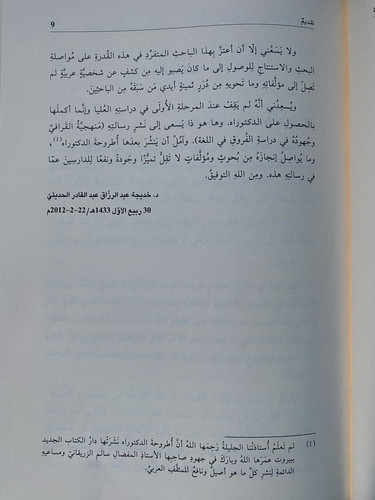 تقديم 9
ولا يَسَعُني إلّا أن أعتزَّ بهذا الباحثِ المتفرِّد في هذه القُدرةِ على مُواصلةِ
البحثِ والاستنتاجِ للوصولِ إلى ما كانَ يَصبو إليه مِن كشفٍ عن شخصيّةٍ عربيّةٍ لم
تَصِلْ إلى مؤلَّفاتِهِ وما تَحويه مِن دُرَرٍ ثمينةٍ أيدي مَن سَبَقَهُ مِن الباحثينَ.
ويُسعِدُني أنَّهُ لم يَقِفْ عندَ المرحلةِ الأُولى في دراستِهِ العُليا وإنَّما أكملَها
بالحصولِ على الدكتوراه. وها هو ذا يَسعى إلى نَشرِ رسالتِهِ (منهجيّةُ القَرافيّ
وجُهودُهُ في دراسةِ الفُروقِ في اللغة). وآمُلُ أن يَنشُرَ بعدَها أُطروحةَ الدكتوراه(1)،
وما يُواصِلُ إنجازَهُ مِن بُحوثٍ ومُؤلَّفاتٍ لا تَقِلُّ تَميُّزًا وجَودةً ونفعًا للدارسينَ عمّا
في رسالتِهِ هذه. ومِن اللهِ التوفيقُ.
د. خديجة عبد الرزّاق عبد القادر الحديثيّ
30 ربيع الأوّل 1433هـ/22–2–2012م
(1) لم تَعلَمْ أُستاذتُنا الجليلةُ رَحِمَها اللهُ أنَّ أُطروحةَ الدكتوراه نَشَرَتْها دارُ الكتاب الجديد
ببيروت عمّرَها اللهُ وبارَكَ في جهودِ صاحبِها الأستاذِ المفضالِ سالم الزريقانيّ ومساعيهِ
الدائمةِ لِنشرِ كلِّ ما هو أصيلٌ ونافعٌ للمثقّفِ العربيِّ.